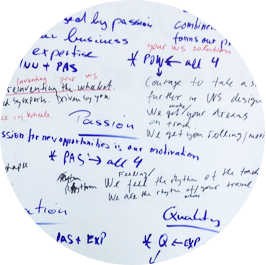 by passion
combine
business
forms our p
expertise
your WS solution
INU + PAS
* POW ← all 4
Inventing your WS
reinventing the wheel.
Courage to take a s
by experts. Driven by you.
further in WS design
We get your dreams
on track.
Passion
We get you rolling / movi
passion for new opportunities is our motivation
* PAS → all 4
Feeling /
Rhythm
We feel the rhythm of the track
Rhythm
We are the rhythm of your travel
Quality
IAS + EXP
* Q ← EXP